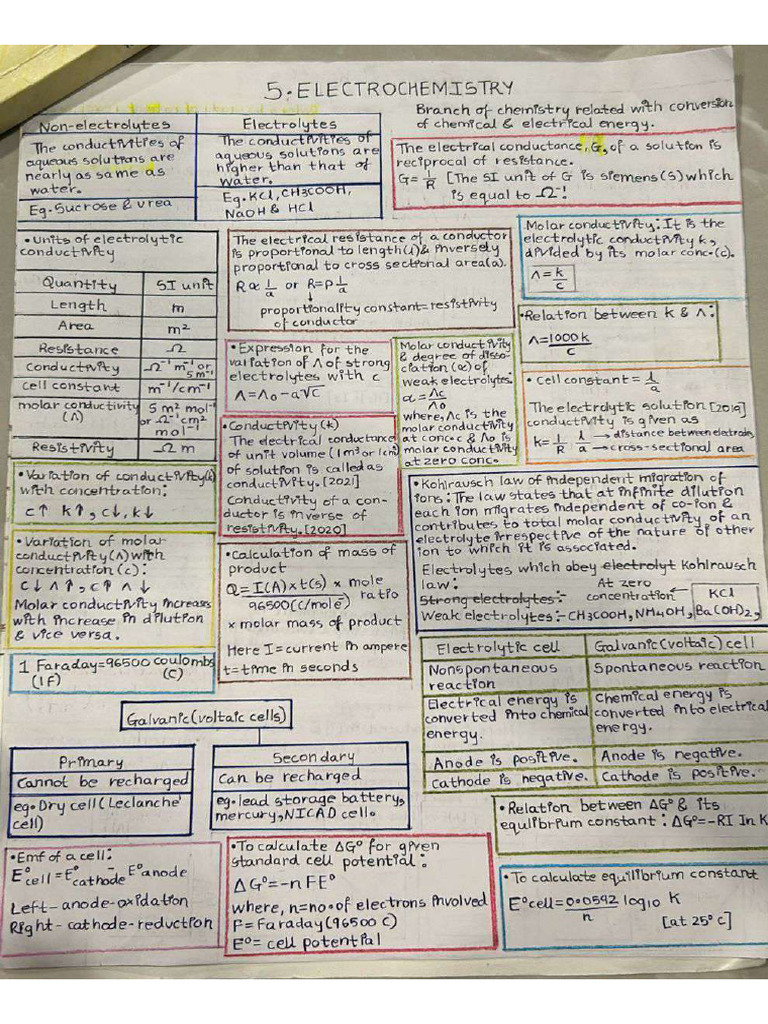 5. ELECTROCHEMISTRY
Non-electrolytes
The conductivities of
aqueous solutions are
nearly as same as
water.
Eg. Sucrose & urea
Electrolytes
The conductivities of
aqueous solutions are
higher than that of
water.
Eg. KCl, CH3COOH,
NaOH & HCl
Branch of chemistry related with conversion
of chemical & electrical energy.
The electrical conductance, G, of a solution is
reciprocal of resistance.
G = 1/R [The SI unit of G is siemens (S) which
is equal to Ω⁻¹.
• Units of electrolytic
conductivity
Quantity SI unit
Length m
Area m²
Resistance Ω
Conductivity Ω⁻¹ m⁻¹ or
S m⁻¹
cell constant m⁻¹/cm⁻¹
molar conductivity S m² mol⁻¹
(Λ) or Ω⁻¹ cm²
mol⁻¹
Resistivity Ω m
The electrical resistance of a conductor
is proportional to length(l) & inversely
proportional to cross sectional area(a).
R ∝ l/a or R = ρ l/a
↓
proportionality constant = resistivity
of conductor
Molar conductivity: It is the
electrolytic conductivity k,
divided by its molar conc. (c).
Λ = k/c
• Relation between k & Λ:
Λ = 1000 k/c
• Expression for the
variation of Λ of strong
electrolytes with c
Λ = Λ₀ - a√c
Molar conductivity
& degree of disso-
ciation (α) of
weak electrolytes:
α = Λc/Λ₀
where, Λc is the
molar conductivity
at conc. c & Λ₀ is
molar conductivity
at zero conc.
• cell constant = l/a
The electrolytic solution [2019]
conductivity is given as
k = 1/R l/a → distance between eletrodes
→ cross-sectional area
• Conductivity (k)
The electrical conductance
of unit volume (1m³ or 1cm³)
of solution is called as
conductivity. [2021]
Conductivity of a con-
ductor is inverse of
resistivity. [2020]
• Variation of conductivity(k)
with concentration:
c↑ k↑, c↓, k↓
• Kohlrausch law of independent migration of
ions: The law states that at infinite dilution
each ion migrates independent of co-ion &
contributes to total molar conductivity of an
electrolyte irrespective of the nature of other
ion to which it is associated.
Electrolytes which obey electrolyt Kohlrausch
law: At zero
Strong electrolytes:- concentration ← KCl
Weak electrolytes:- CH3COOH, NH4OH, Ba(OH)2,
• Variation of molar
conductivity (Λ) with
concentration (c):
c↓ Λ↑, c↑ Λ↓
Molar conductivity increases
with increase in dilution
& vice versa.
• Calculation of mass of
product
Q = I(A) x t(s) x mole
96500 (C/mole) ratio
x molar mass of product
Here I = current in ampere
t = time in seconds
1 Faraday = 96500 coulombs
(1F) (C)
Electrolytic cell
Nonspontaneous
reaction
Electrical energy is
converted into chemical
energy.
Anode is positive.
Cathode is negative.
Galvanic (voltaic) cell
Spontaneous reaction
Chemical energy is
converted into electrical
energy.
Anode is negative.
Cathode is positive.
Galvanic (voltaic cells)
Primary
Cannot be recharged
eg. Dry cell (Leclanche'
cell)
Secondary
Can be recharged
eg. lead storage battery,
mercury, NICAD cell.
• Relation between ΔG° & its
equilbrium constant : ΔG° = -RI ln K
• Emf of a cell:
E°cell = E°cathode - E°anode
Left - anode - oxidation
Right - cathode - reduction
• To calculate ΔG° for given
standard cell potential:
ΔG° = -nFE°
where, n = no. of electrons involved
F = Faraday (96500 C)
E° = cell potential
• To calculate equilibrium constant
E°cell = 0.0592/n log10 K
[at 25°C]